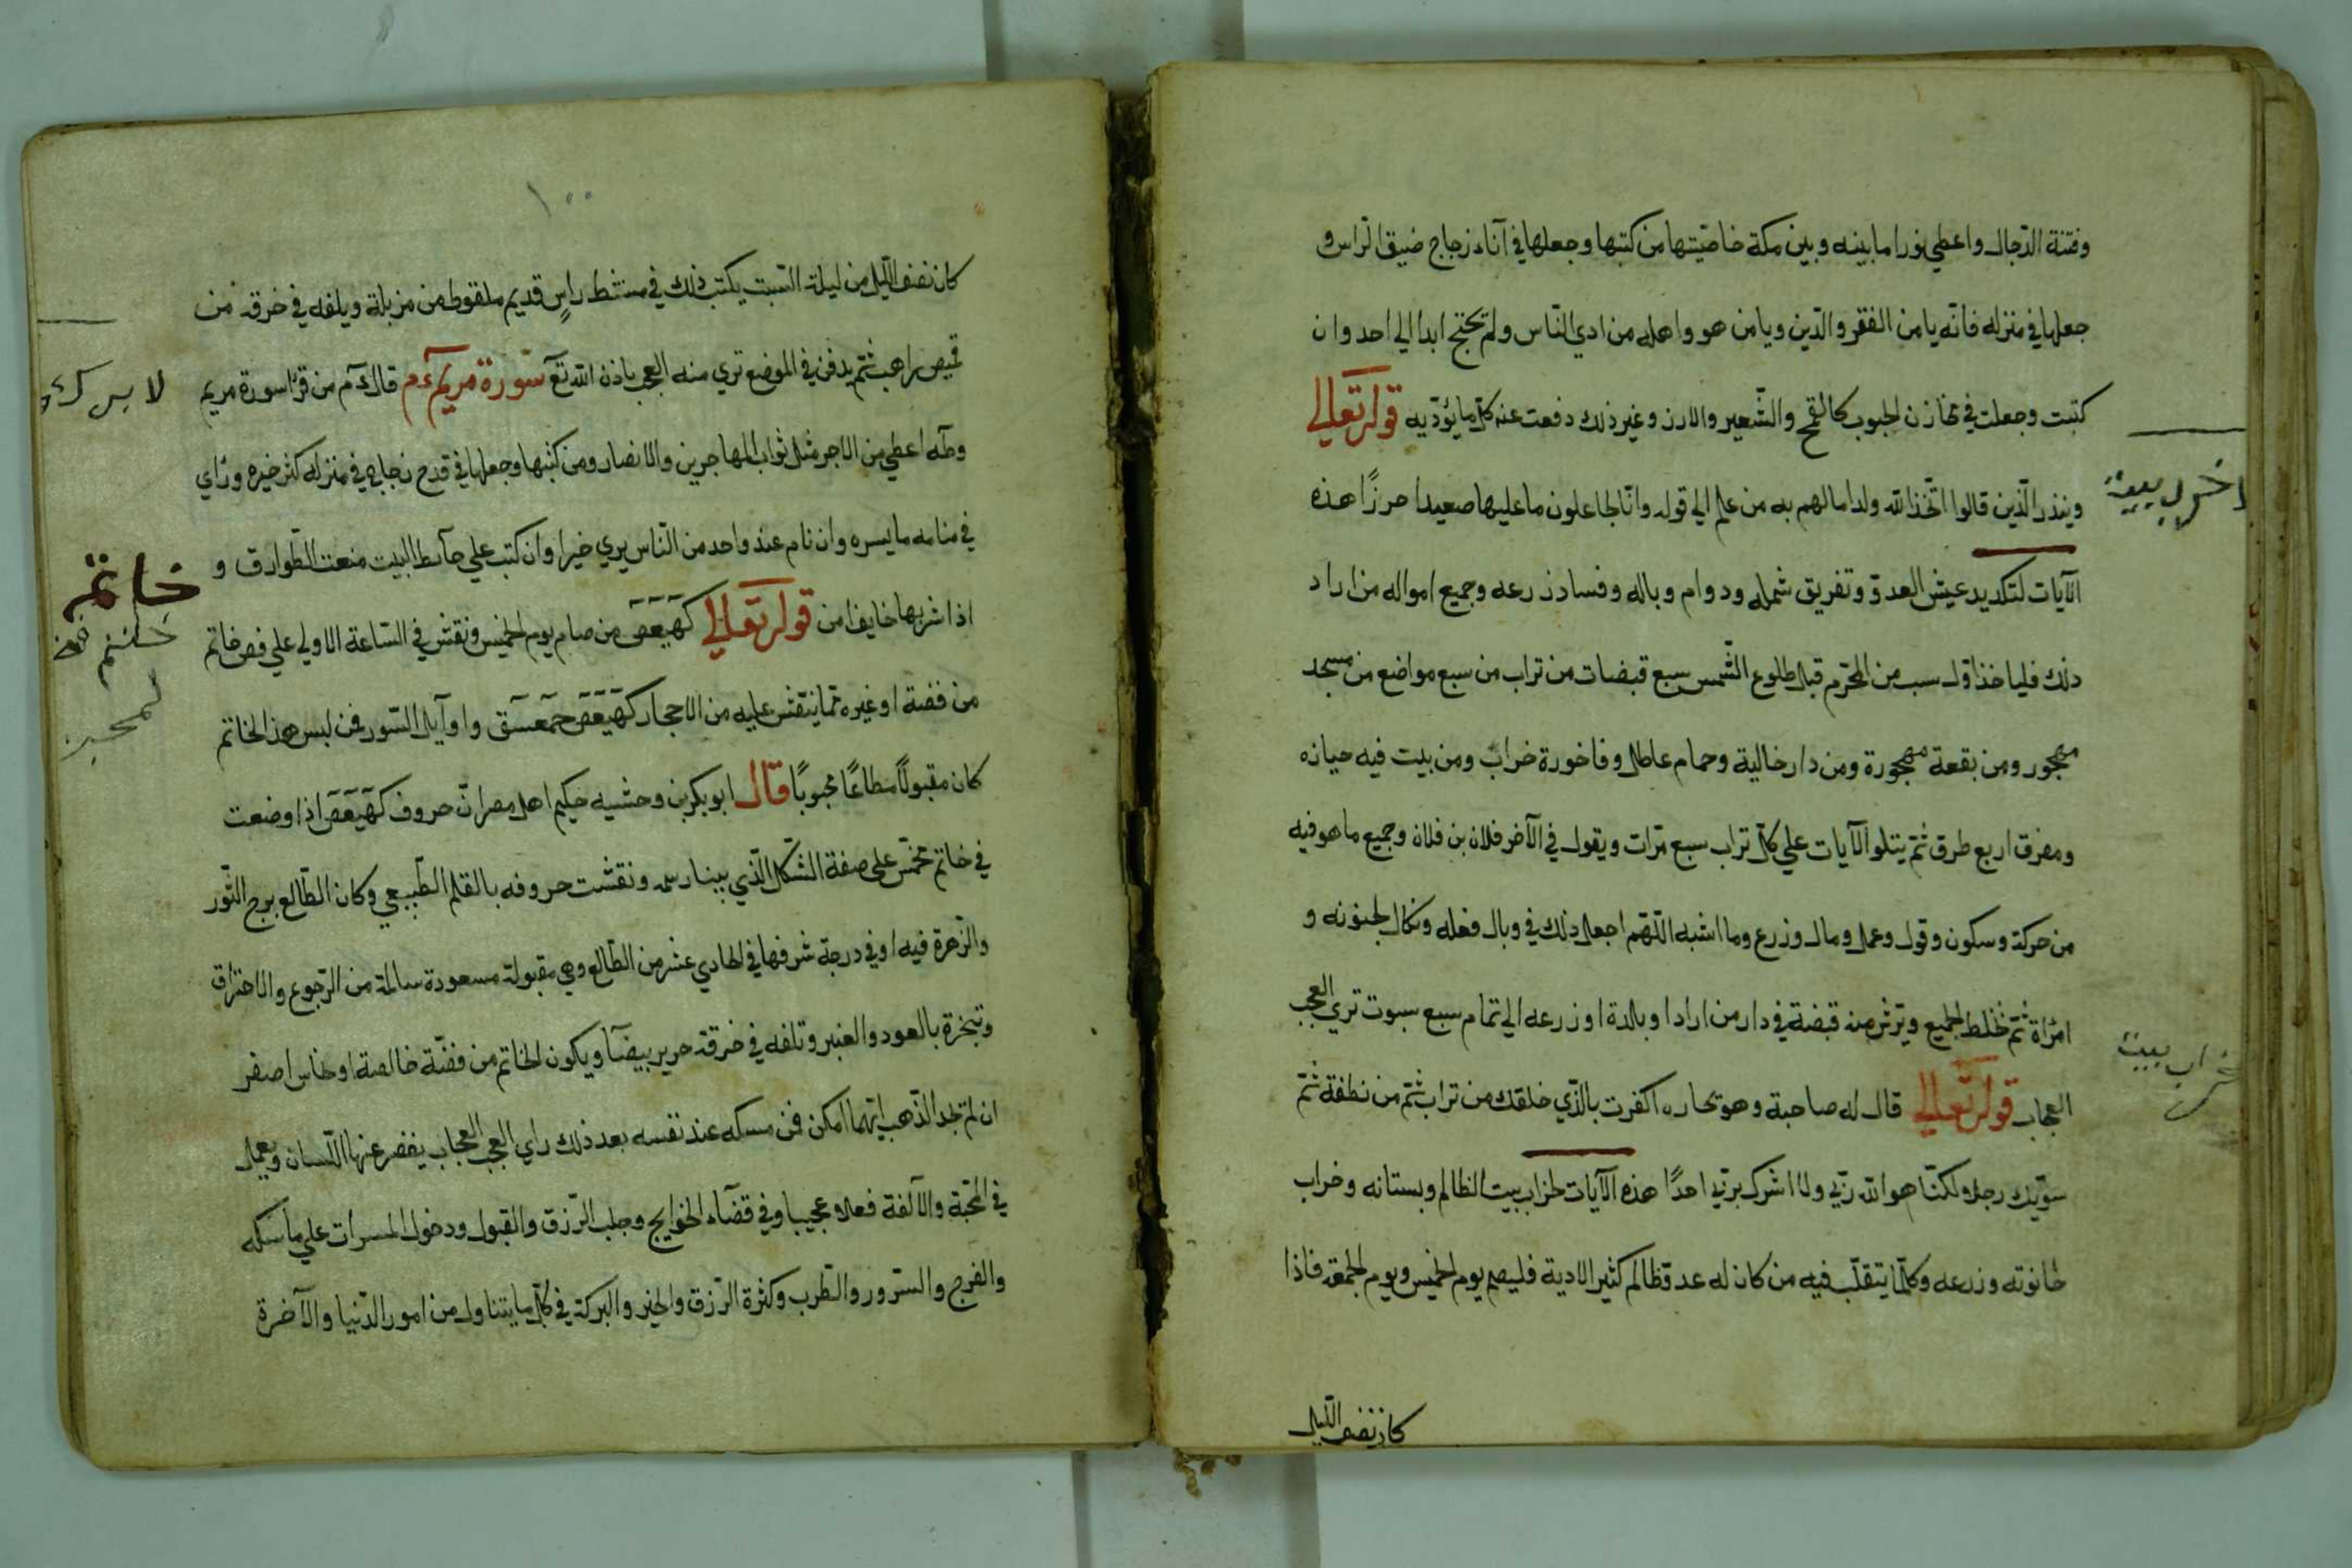 وفتنة الدّجال واعطي نورا ما بينه وبين مكة خاصّيتها من كتبها وجعلها في آناء زجاج ضيق الرّاس و
جعلها في منزله فانّه يا من الفقر والدّين ويا من هو واهله من ادي النّاس ولم يحتج ابدا الي احد وان
كتبت وجعلت في مخازن الحبوب كالقمح والشّعير والارز وغير ذلك دفعت عنه كل ما يؤدّيه قوله تعالي
وينذر الّذين قالوا اتّخذ الله ولدا ما لهم به من علم الي قوله وانّا لجاعلون ما عليها صعيدا حرزًا هذه
الآيات لتكديد عيش العدوّ وتفريق شمله ودوام وباله وفساد زرعه وجميع امواله من اراد
ذلك فلياخذ اوّل سبت من المحرّم قبل طلوع الشّمس سبع قبضات من تراب من سبع مواضع من مسجد
مهجور ومن بقعة مهجورة ومن دار خالية وحمام عاطل وفاخورة خراب ومن بيت فيه حيازه
ومفرق اربع طرق ثمّ يتلو الآيات علي كلّ تراب سبع مرّات ويقول في الآخر فلان بن فلان وجميع ما هو فيه
من حركة وسكون وقول وعمل ومال وزرع وما اشبه اللّهم اجعل ذلك في وبال فعله ونكال لجنونه و
امرّاة ثمّ تخلط الجميع ويترش منه قبضة في دار من اراد او بالدة او زرعه الي تمام سبع سبوت تري العجب
العجاب قوله تعالي قال له صاحبه وهو يحاره اكفرت بالّذي خلقك من تراب ثمّ من نطفة ثمّ
سوّيك رجلا ولكنّا هو الله ربّي ولا اشرك بربّي احدًا هذه الآيات لخراب بيت الظالم وبستانه وخراب
خانوته وزرعه وكلّما يتقلّب فيه من كان له عدوّ ظالم كثير الادية فليصم يوم الخميس ويوم الجمعة فاذا
كان نصف اللّيل
خراب بيت
١٠٠
كان نصف اللّيل من ليلة السّبت يكتب ذلك في مشط راسٍ قديم ملقوط من مزبلة ويلفه في خرقة من
قميص راهب ثمّ يدفن في الموضع تري منه العجب باذن الله تع سورة مريم عم قال عم من قرّا سورة مريم
وطه اعطي من الاجر مثل ثواب المهاجرين والانصار ومن كتبها وجعلها في قدح زجاج في منزله كثر خيره ورّاي
في منامه ما يسره وان نام عند واحد من النّاس يري خيرا وان كتب علي حآئط البيت منعت الطّوارق و
اذا شربها خايف امن قوله تعالي كهيعص من صام يوم الخميس ونقش في السّاعة الاولي علي فص خاتم
من فضة او غيره ممّا ينتقش عليه من الاحجار كهيعص حمعسق واوآيل السّور فمن لبس هذا الخاتم
كان مقبولًا مطاعًا محبوبًا قال ابو بكر بن وحشيه حكيم اهل مصر انّ حروف كهيعص اذا وضعت
في خاتم مخمّس علي صفة الشّكل الّذي بينا رسمه ونقشت حروفه بالقلم الطّبيعي وكان الطّالع برج الثّور
والزّهرة فيه او في درجة شرفها في الحادي عشر من الطّالع وهي مقبولة مسعودة سالمة من الرّجوع والاحتراق
وتبخرة بالعود والعنبر وتلفه في خرقة حرير بيضآ ويكون الخاتم من فضّة خالصة او نحاس اصفر
ان لم تجد الذّهب ايّهما امكن فمن مسكه عند نفسه بعد ذلك راي العجب العجاب يقصر عنها اللّسان ويعمل
في المحبّة والآلفة فعلا عجيبا وفي قضآء الحوايج وجلب الرّزق والقبول ودخول المسرات علي ماسكه
والفرح والسّرور والطّرب وكثرة الرّزق والخير والبركة في كلّ ما يتناول من امور الدّنيا والآخرة
خاتم